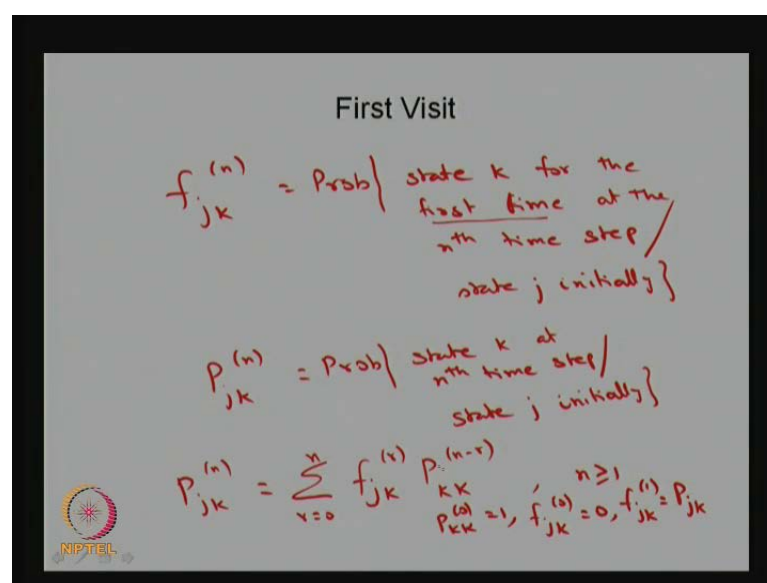 First Visit
f_jk^(n) = Prob{ state k for the
first time at the
nth time step /
state j initially}
P_jk^(n) = Prob{ state k at
nth time step /
state j initially}
P_jk^(n) = Σ_{r=0}^{n} f_jk^(r) P_kk^(n-r) , n≥1
P_kk^(0) = 1, f_jk^(0) = 0, f_jk^(1) = P_jk
NPTEL